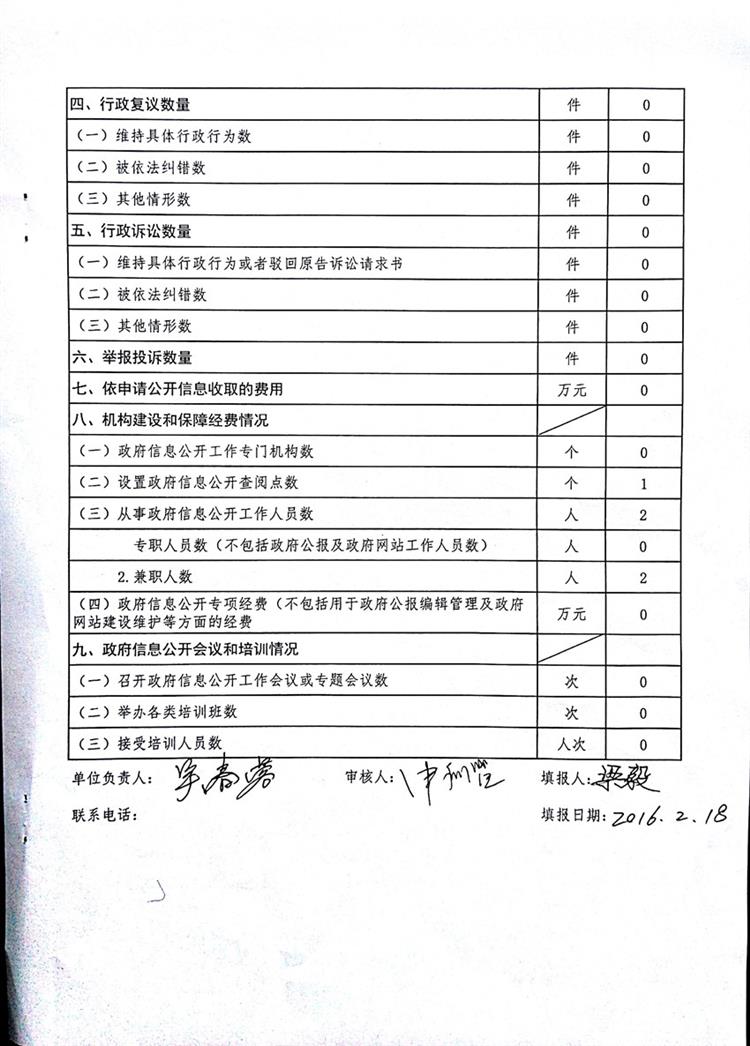 四、行政复议数量 件 0
（一）维持具体行政行为数 件 0
（二）被依法纠错数 件 0
（三）其他情形数 件 0
五、行政诉讼数量 件 0
（一）维持具体行政行为或者驳回原告诉讼请求书 件 0
（二）被依法纠错数 件 0
（三）其他情形数 件 0
六、举报投诉数量 件 0
七、依申请公开信息收取的费用 万元 0
八、机构建设和保障经费情况
（一）政府信息公开工作专门机构数 个 0
（二）设置政府信息公开查阅点数 个 1
（三）从事政府信息公开工作人员数 人 2
专职人员数（不包括政府公报及政府网站工作人员数） 人 0
2.兼职人数 人 2
（四）政府信息公开专项经费（不包括用于政府公报编辑管理及政府
网站建设维护等方面的经费 万元 0
九、政府信息公开会议和培训情况
（一）召开政府信息公开工作会议或专题会议数 次 0
（二）举办各类培训班数 次 0
（三）接受培训人员数 人次 0
单位负责人： 审核人： 填报人：梁毅
联系电话： 填报日期：2016.2.18